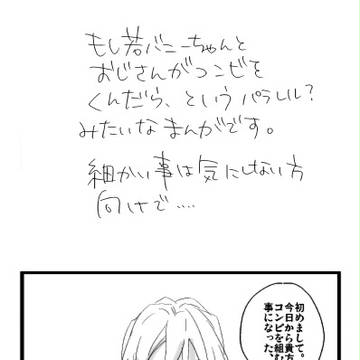 もし若バニーちゃんと
おじさんがコンビを
くんだら、というパラレル?
みたいなまんがです。
細かい事は気にしない方
向けで....
初めまして。
今日から貴方と
コンビを組む
事になった、